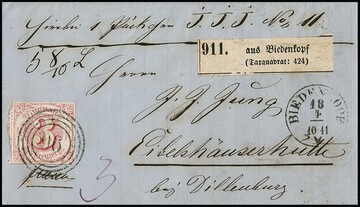 Hierbei 1 Päckchen J. J. J. No. 11.
5 8/10 L
911. aus Biedenkopf
(Taxquadrat: 424)
Herrn
J. J. Jung
Eibelshäuserhütte
bey Dillenburg
BIEDENKOPF
18
4
10-11
3